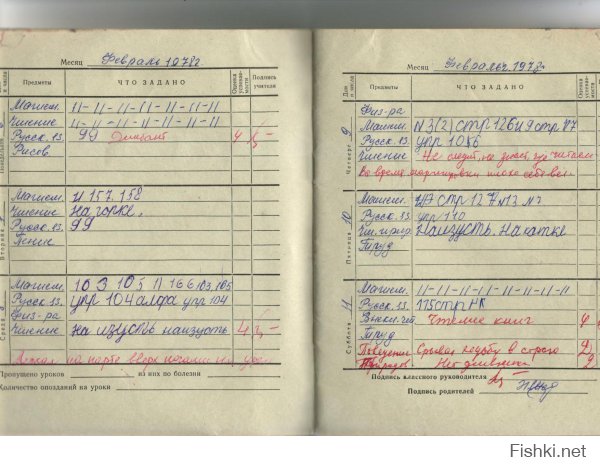 Месяц Февраль 1978г
Предметы ЧТО ЗАДАНО Оценка успевае-мости Подпись учителя
Понедельник 6
Матем. 11-11-11-11-11-11-11
Чтение 11-11-11-11-11-11-11
Русск. яз. 99 Диктант 4
Рисов.
Вторник 7
Матем. N 157. 158
Чтение На горке.
Русск. яз. 99
Пение
Среда 8
Матем. 103 105 11 166 103, 105
Русск. яз. упр 104 алфа упр 104
Физ-ра
Чтение На изусть наизусть 4
Лежал на парте вверх ногами на уроке
Пропущено уроков из них по болезни
Количество опозданий на уроки
Месяц Февраль. 1978г
Дни и числа Предметы ЧТО ЗАДАНО Оценка успевае-мости
Четверг 9
Физ-ра
Матем. N3(2) стр 126 и 9 стр 77
Русск. яз. упр 106
Чтение Не следит, не знает, где читаем
Во время маршировки плохо себя вел.
Пятница 10
Матем. N7 стр 127 N12 N7
Русск. яз. упр 110
Чт. Наизусть. На катке
Труд
Суббота 11
Матем. 11-11-11-11-11-11-11
Русск. яз. 115 стр НК
Внекл. чт. Чтение книг 4
Труд
Поведение Срывал ходьбу в строю 2
Природов. Нет дневника 2
Подпись классного руководителя
Подпись родителей
Fishki.net